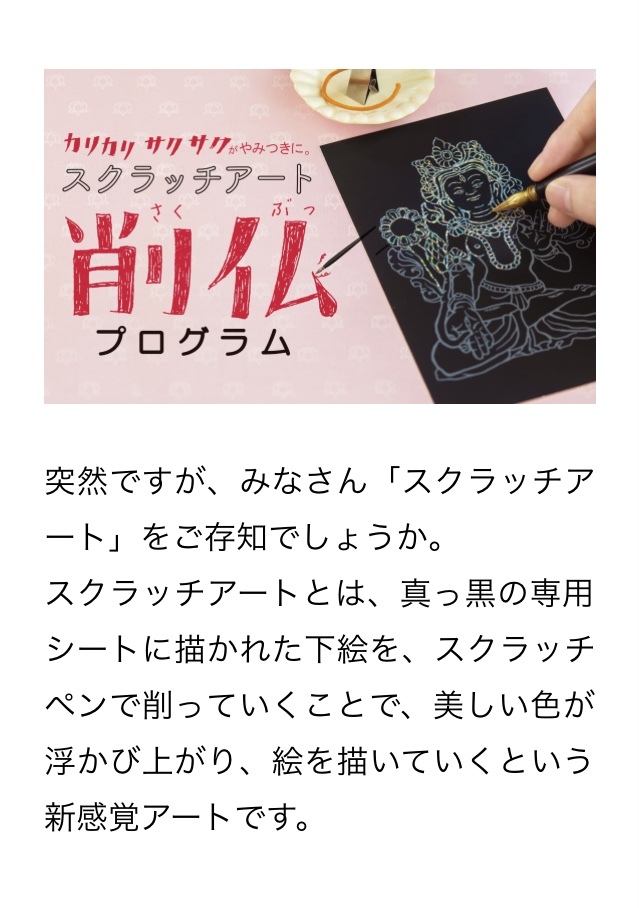 カリカリ サクサクがやみつきに。
スクラッチアート
さく ぶっ
削仏
プログラム
突然ですが、みなさん「スクラッチア
ート」をご存知でしょうか。
スクラッチアートとは、真っ黒の専用
シートに描かれた下絵を、スクラッチ
ペンで削っていくことで、美しい色が
浮かび上がり、絵を描いていくという
新感覚アートです。